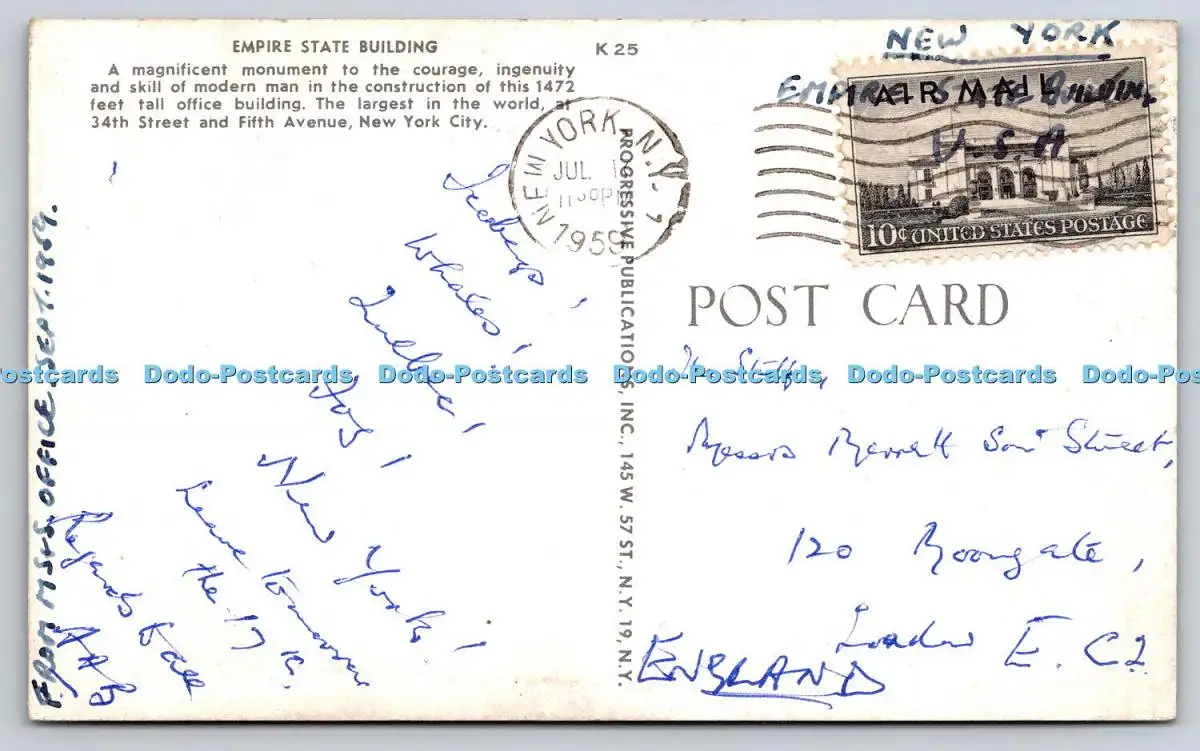 EMPIRE STATE BUILDING
K 25
A magnificent monument to the courage, ingenuity
and skill of modern man in the construction of this 1472
feet tall office building. The largest in the world, at
34th Street and Fifth Avenue, New York City.
NEW YORK
EMPIRE STATE BUILDING
U.S.A
AIR MAIL
10¢ UNITED STATES POSTAGE
NEW YORK, N.Y.
JUL 1
11 30 PM
1959
PROGRESSIVE PUBLICATIONS, INC., 145 W. 57 ST., N.Y. 19, N.Y.
POST CARD
Icebergs!
Whales!
Quebec!
Fog!
New York!
Leave tomorrow
the 17th.
Regards to all
FROM MSS. OFFICE. SEPT. 1959.
The Staff,
Messrs Street,
120 Moorgate,
London E.C2
ENGLAND
Dodo-Postcards Dodo-Postcards Dodo-Postcards Dodo-Postcards Dodo-Postcards